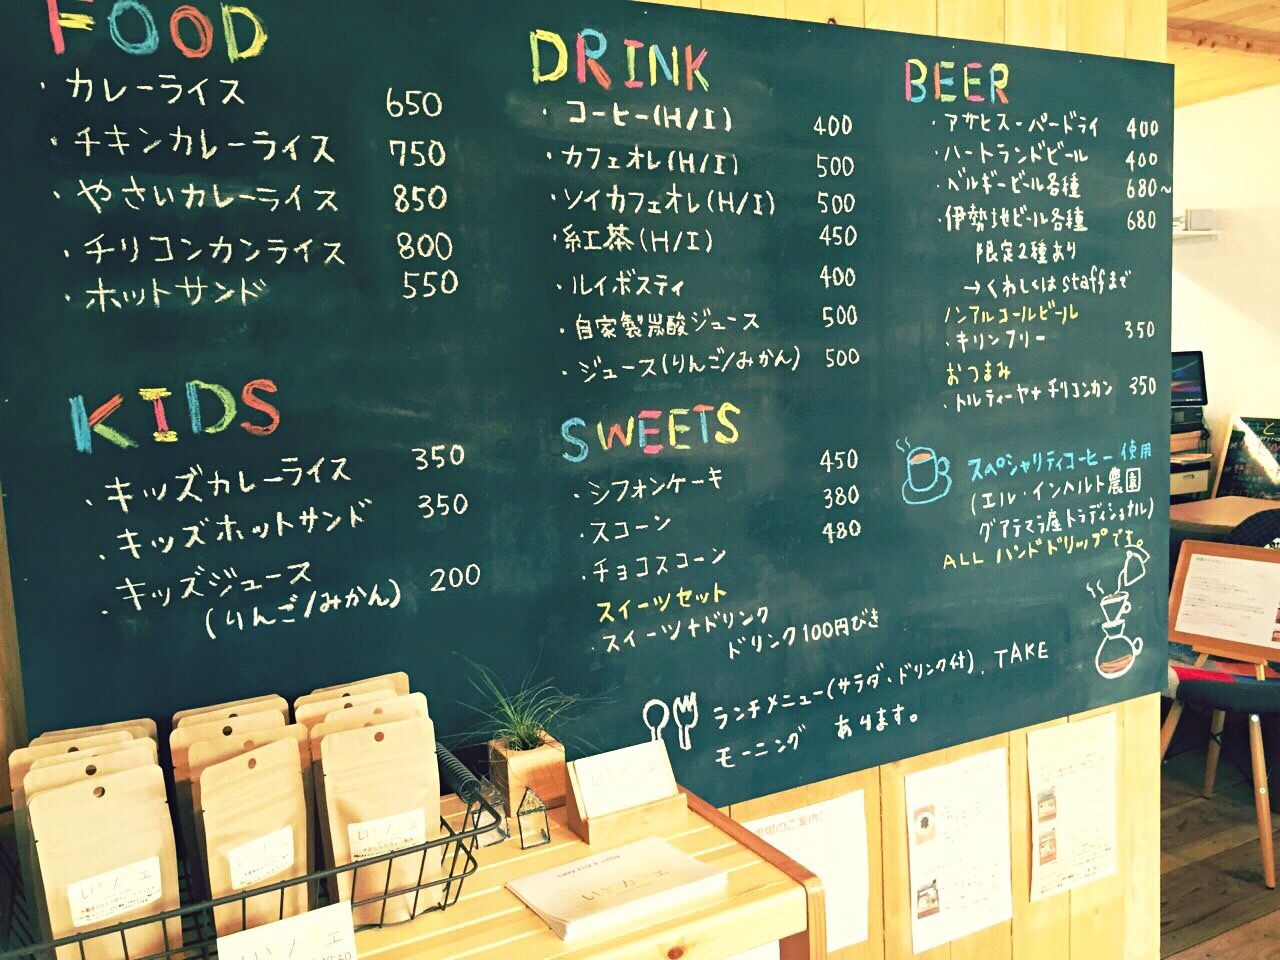 FOOD
・カレーライス 650
・チキンカレーライス 750
・やさいカレーライス 850
・チリコンカンライス 800
・ホットサンド 550
KIDS
・キッズカレーライス 350
・キッズホットサンド 350
・キッズジュース 200
(りんご/みかん)
DRINK
・コーヒー(H/I) 400
・カフェオレ(H/I) 500
・ソイカフェオレ(H/I) 500
・紅茶(H/I) 450
・ルイボスティ 400
・自家製炭酸ジュース 500
・ジュース(りんご/みかん) 500
SWEETS
・シフォンケーキ 450
・スコーン 380
・チョコスコーン 480
スイーツセット
・スイーツ+ドリンク
ドリンク100円びき
BEER
・アサヒスーパードライ 400
・ハートランドビール 400
・ベルギービール各種 680~
・伊勢地ビール各種 680
限定2種あり
→くわしくはstaffまで
ノンアルコールビール
・キリンフリー 350
おつまみ
・トルティーヤ+チリコンカン 350
スペシャリティコーヒー使用
(エル・インヘルト農園
グアテマラ産トラディショナル)
ALL ハンドドリップです。
ランチメニュー(サラダ・ドリンク付)、TAKE
モーニング あります。